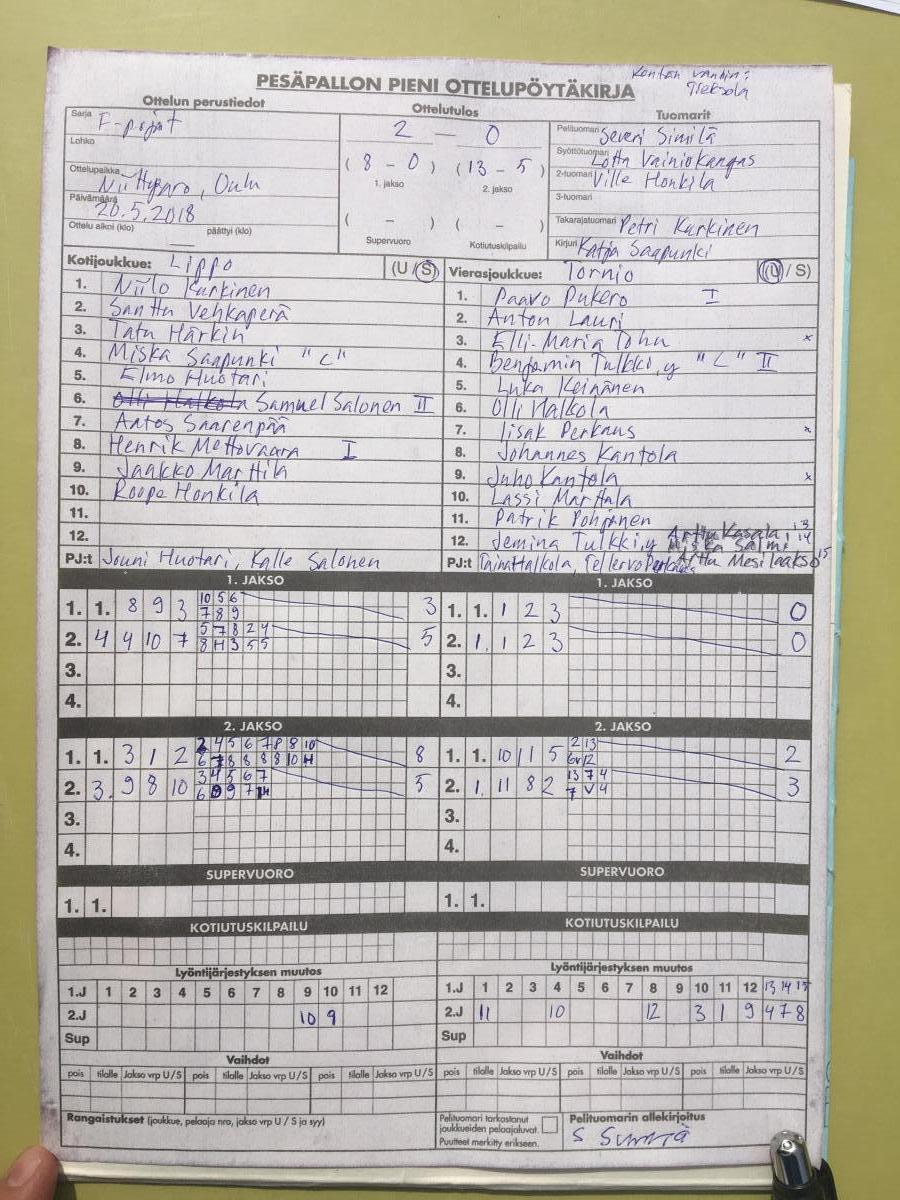 PESÄPALLON PIENI OTTELUPÖYTÄKIRJA
Ottelun perustiedot
Sarja F-pojat
Lohko
Ottelupaikka Niittyaro, Oulu
Päivämäärä 20.5.2018
Ottelu alkoi (klo) päättyi (klo)
Ottelutulos
2 — 0
( 8 - 0 ) ( 13 - 5 )
1. jakso 2. jakso
( - ) ( - )
Supervuoro Kotiutuskilpailu
Tuomarit
Pelituomari Severi Similä
Syöttötuomari Lotta Vainiokangas
2-tuomari Ville Honkila
3-tuomari
Takarajatuomari Petri Karkinen
Kirjuri Katja Saapunki
Kotijoukkue: Lippo (U / S)
1. Niilo Karkinen
2. Santtu Vehkaperä
3. Tatu Härkin
4. Miska Saapunki "C"
5. Elmo Huotari
6. Olli Halkola Samuel Salonen II
7. Aatos Saarenpää
8. Henrik Mettovaara I
9. Jaakko Marttila
10. Roope Honkila
11.
12.
PJ:t Jouni Huotari, Kalle Salonen
Vierasjoukkue: Tornio (U / S)
1. Paavo Pukero I
2. Anton Lauri
3. Elli-Maria x
4. Benjamin "C" II
5. Luka Keinänen
6. Olli Halkola
7. Iisak Perkaus x
8. Johannes Kantola
9. Juho Kantola x
10. Lassi Marttala
11. Patrik Pohjanen
12. Jemina Arttu Kasala 13
Miska Salmi 14
PJ:t Taina Halkola, Pellervo Arttu Mesilaakso 15
1. JAKSO
1. 1. 8 9 3 10 5 6 3
7 8 9
2. 4 4 10 7 5 7 8 2 4 5
8 H 3 5 5
3.
4.
1. JAKSO
1. 1. 1 2 3 0
2. 1. 1 2 3 0
3.
4.
2. JAKSO
1. 1. 3 1 2 2 4 5 6 7 8 8 10 8
6 7 8 8 8 8 10 H
2. 3. 9 8 10 3 4 5 6 7 5
6 9 9 7
3.
4.
2. JAKSO
1. 1. 10 11 5 2 13 2
6v 12
2. 1. 11 8 2 13 7 4 3
7 V 4
3.
4.
SUPERVUORO
1. 1.
SUPERVUORO
1. 1.
KOTIUTUSKILPAILU
KOTIUTUSKILPAILU
Lyöntijärjestyksen muutos
1.J 1 2 3 4 5 6 7 8 9 10 11 12
2.J 10 9
Sup
Lyöntijärjestyksen muutos
1.J 1 2 3 4 5 6 7 8 9 10 11 12 13 14 15
2.J 11 10 12 3 1 9 4 7 8
Sup
Vaihdot
pois tilalle Jakso vrp U/S pois tilalle Jakso vrp U/S pois tilalle Jakso vrp U/S
Vaihdot
pois tilalle Jakso vrp U/S pois tilalle Jakso vrp U/S pois tilalle Jakso vrp U/S
Rangaistukset (joukkue, pelaaja nro, jakso vrp U / S ja syy)
Pelituomari tarkastanut
joukkueiden pelaajaluvat.
Puutteet merkitty erikseen.
Pelituomarin allekirjoitus
S Similä